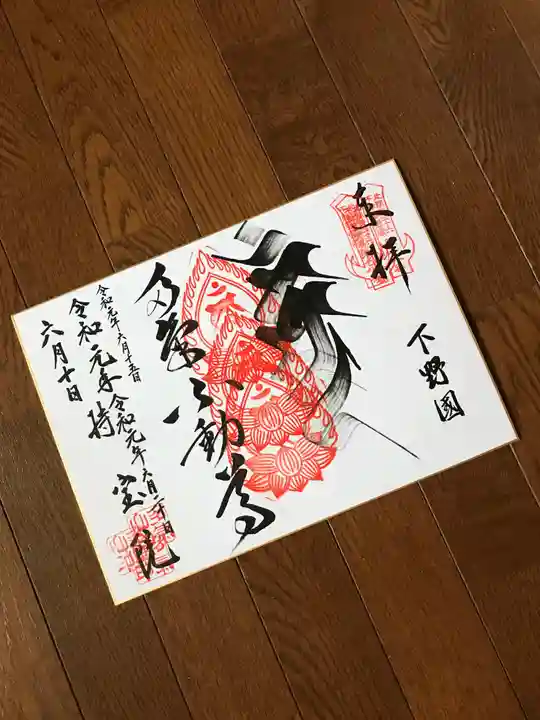 奉拝
下野國
多氣不動尊
令和元年六月十五日
令和元年六月二十日
令和元年
六月十日
持宝院